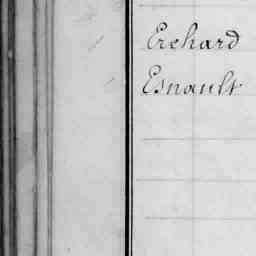 Erchard
Esnault